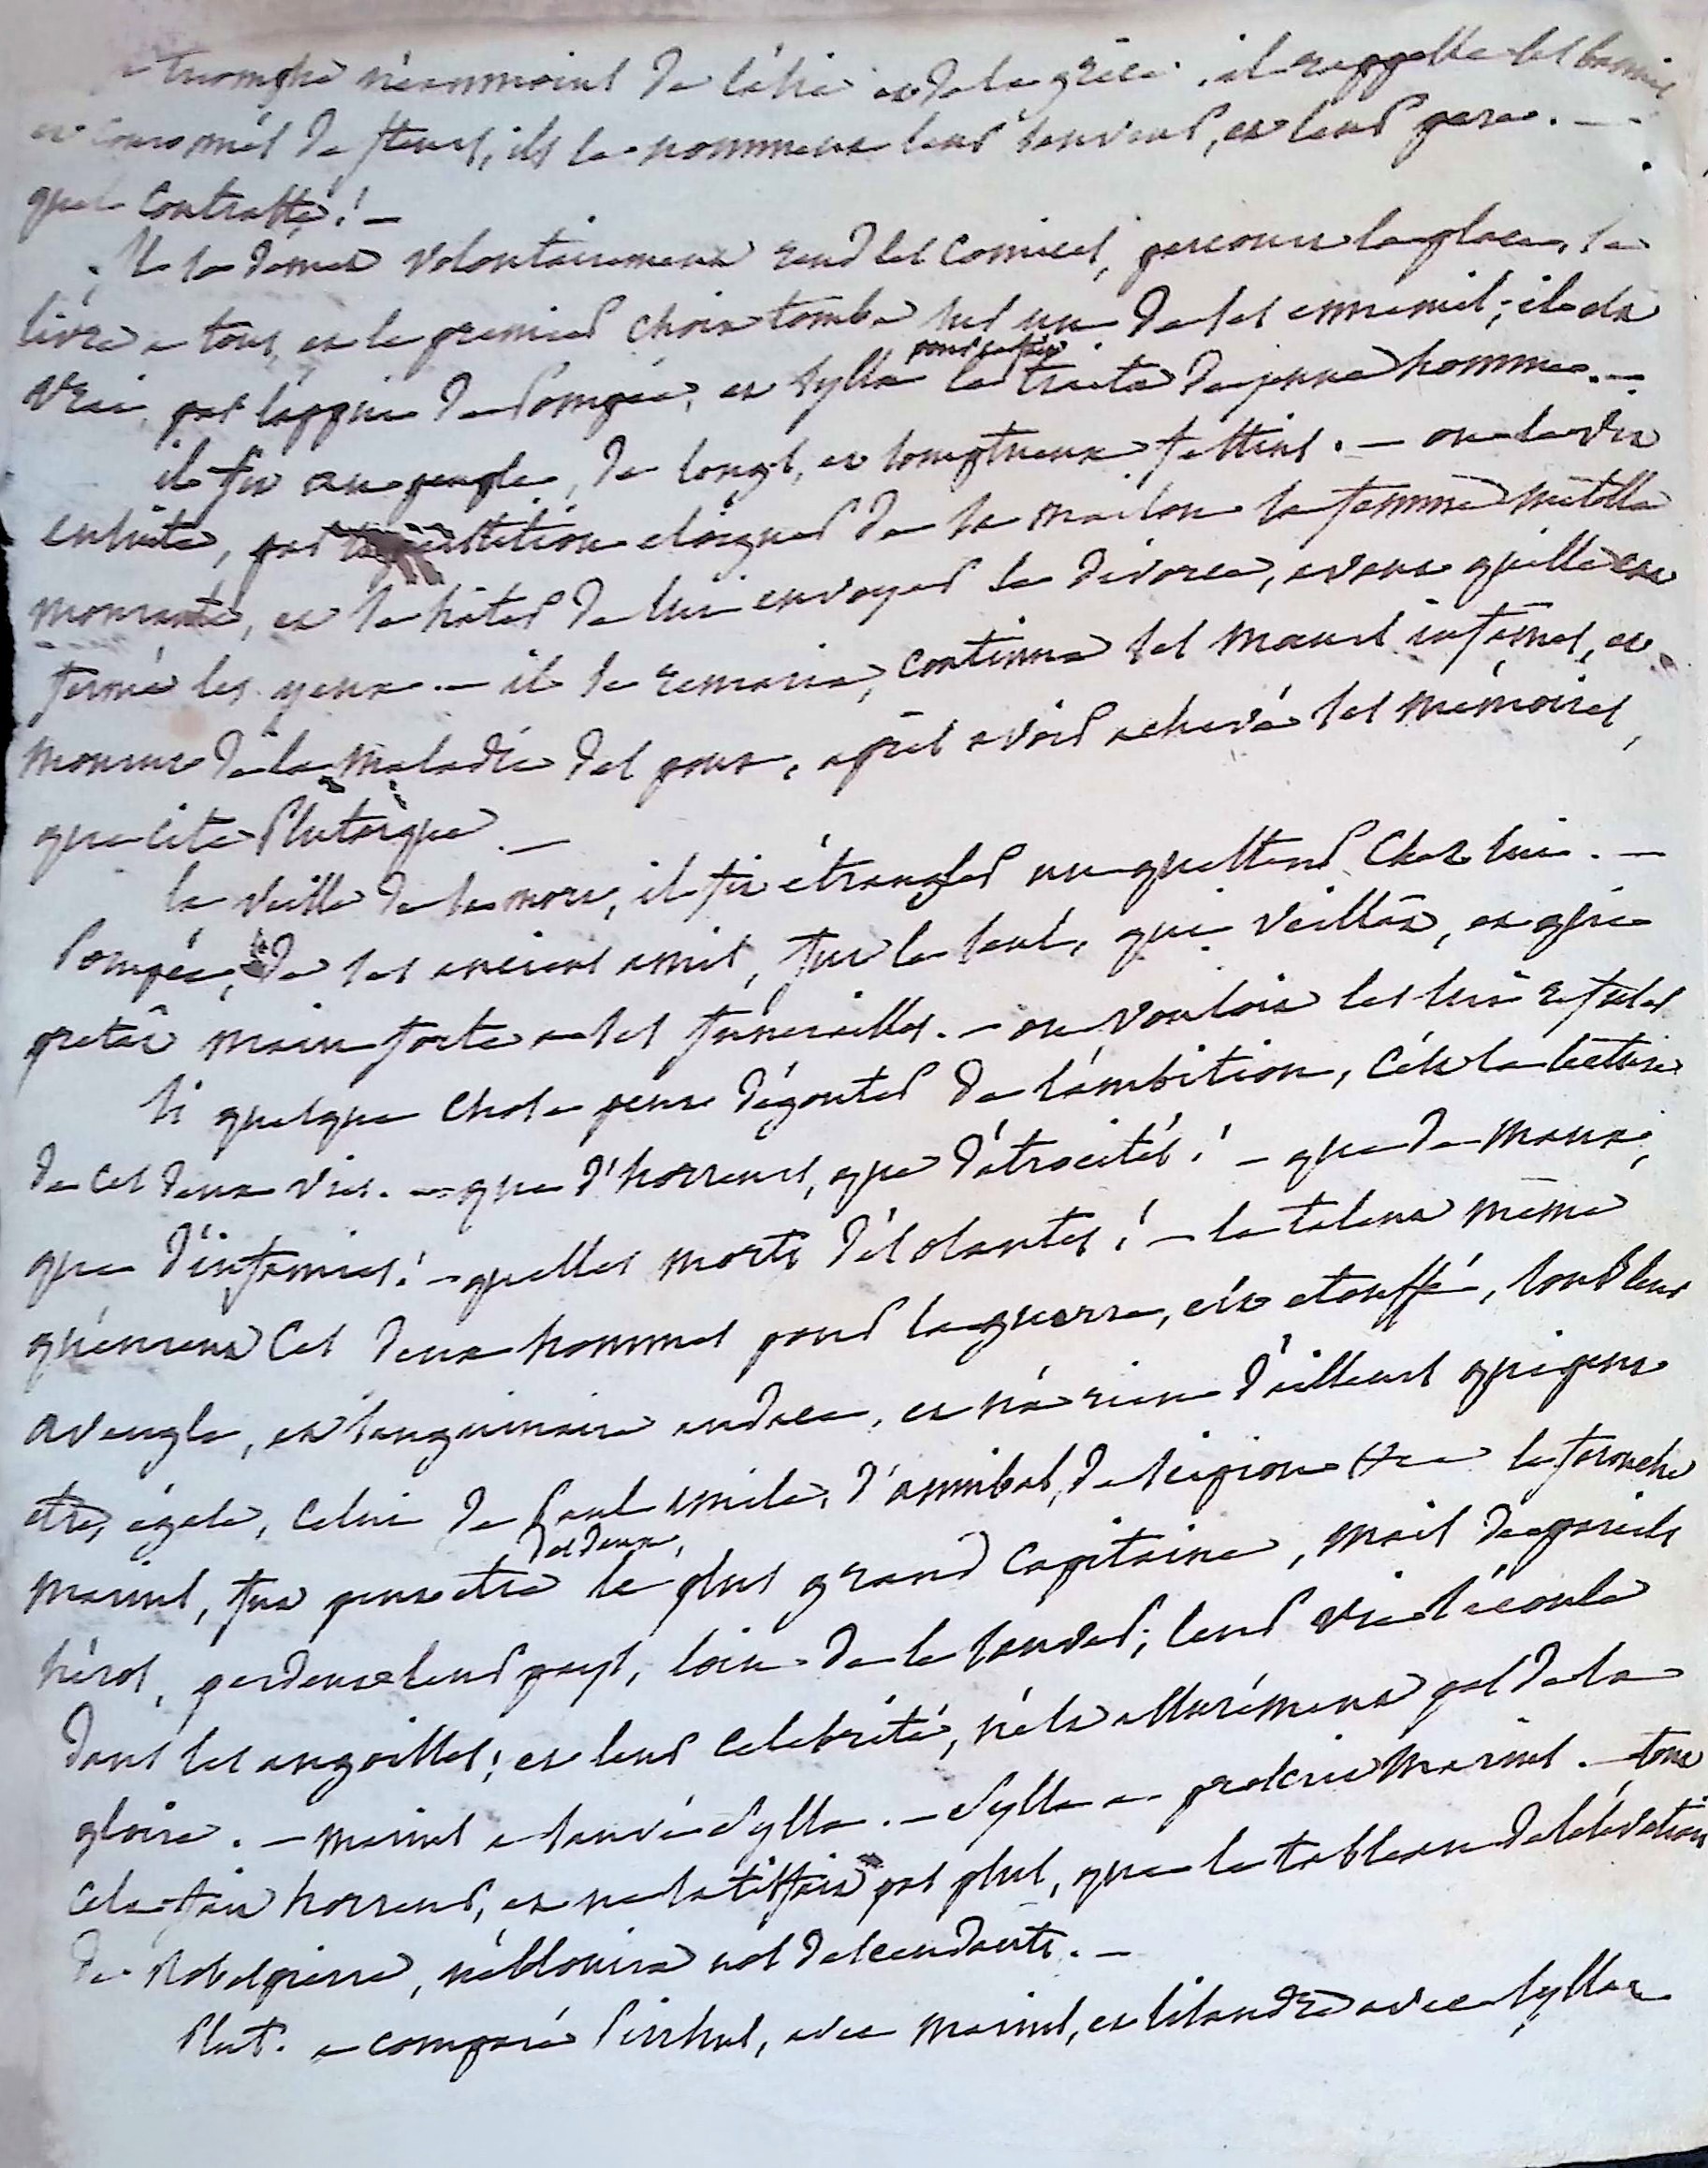 triomphe néanmoins de l'asie et de la grèce. il rappelle les bannis
et couronnés de fleurs, ils le nomment leur sauveur, et leur pere. —
quel contraste! —
Il se démet volontairement rend les comices, parcourt la place, se
livre a tous, et le premier choix tombe sur un de ses ennemis; il est
vrai, par l'appui de Pompée, et Sylla le traita de jeune homme. —
il fit au peuple, de longs, et somptueux festins. — on le vit
ensuite, par superstition eloigner de sa maison sa femme Metella
mourante, et se hâter de lui envoyer le divorce, avant qu'elle eut
fermé les yeux. — il se remaria, continua ses mœurs infames, et
mourut de la maladie des poux, après avoir achevé ses mémoires,
que cite Plutarque. —
la veille de sa mort, il fit étrangler un questeur chez lui. —
Pompée, de ses anciens amis, fut le seul, qui veillât, et qui
pretât main forte a ses funerailles. — on vouloit les lui refuser
si quelque chose peut dégouter de l'ambition, c'est la lecture
de ces deux vies. — que d'horreurs, que d'atrocités! — que de maux,
que d'infamies! — quelles morts désolantes! — le talent même
qu'eurent ces deux hommes pour la guerre, est etouffé, sous leur
aveugle, et sanguinaire audace, et n'a rien d'ailleurs qui peut
etre, égale, celui de Paul emile, d'annibal, de scipion &ca le farouche
marius, fut peut etre des deux, le plus grand capitaine, mais de pareils
héros, perdent leur pays, loin de le sauver; leur vie s'écoule
dans les angoisses; et leur celebrité, n'est assurément pas de la
gloire. — marius a sauvé Sylla. — Sylla a proscrit marius. — tout
cela fait horreur, et ne satisfait pas plus, que le tableau de l'élévation
de Robespierre, n'éblouira nos descendants. —
Plut. a comparé Pirrhus, avec marius, et lisandre avec sylla